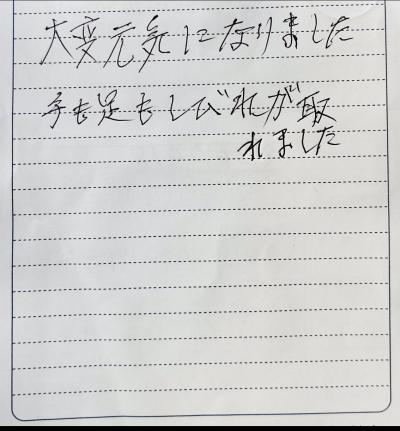 大変元気になりました
手も足もしびれが取
れました